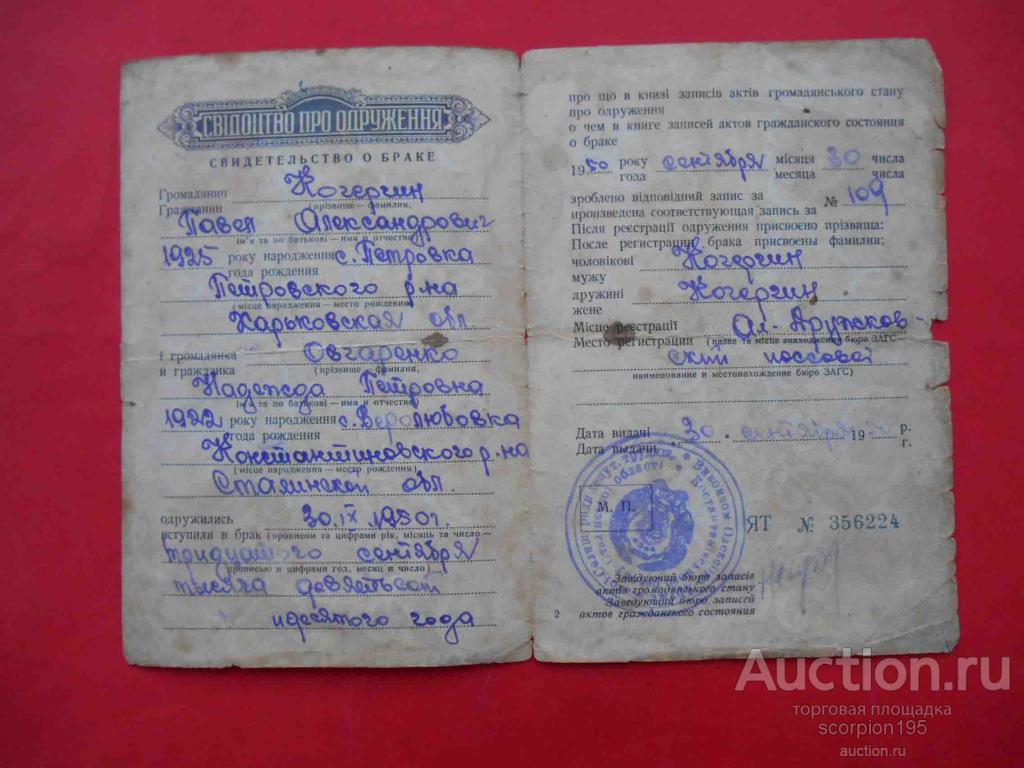 СВІДОЦТВО ПРО ОДРУЖЕННЯ
СВИДЕТЕЛЬСТВО О БРАКЕ
Громадянин Кочергин
Гражданин (прізвище — фамилия,
Павел Александрович
ім'я та по батькові — имя и отчество)
1925 року народження с. Петровка
года рождения
Петровского р-на
(місце народження — место рождения)
Харьковская обл.
і громадянка Овчаренко
и гражданка (прізвище — фамилия,
Надежда Петровна
ім'я та по батькові — имя и отчество)
1922 року народження с. Веролюбовка
года рождения
Константиновского р-на
(місце народження — место рождения)
Сталинской обл.
одружились 30.IX.1950г.
вступили в брак (прописом та цифрами рік, місяць та число —
тридцатого сентября
прописью и цифрами год, месяц и число)
тысяча девятьсот
идесятого года
про що в книзі записів актів громадянського стану
про одруження
о чем в книге записей актов гражданского состояния
о браке
1950 року сентября місяця 30 числа
года месяца числа
зроблено відповідний запис за № 109
произведена соответствующая запись за
Після реєстрації одруження присвоєно прізвища:
После регистрации брака присвоены фамилии:
чоловікові Кочергин
мужу
дружині Кочергин
жене
Місце реєстрації Ал-Дружков-
Место регистрации (назва та місце знаходження бюро ЗАГС —
ский поссовет
наименование и местонахождение бюро ЗАГС)
Дата видачі 30 сентября 1950 р.
Дата выдачи г.
М. П.
ЯТ № 356224
Завідуючий бюро записів
актів громадянського стану
Заведующий бюро записей
актов гражданского состояния
2
Auction.ru
торговая площадка
scorpion195
auction.ru